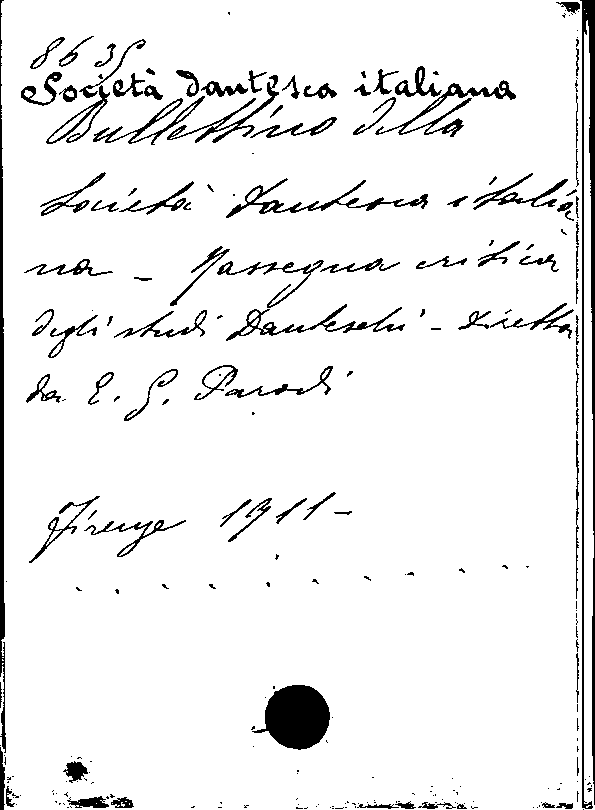 8635
Società dantesca italiana
Bullettino della
Società Dantesca italia
na - Rassegna critica
degli studi Danteschi - diretta
da E. G. Parodi
Firenze 1911 -